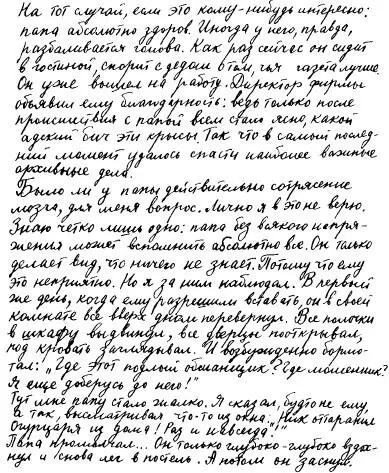 На тот случай, если это кому-нибудь интересно:
папа абсолютно здоров. Иногда у него, правда,
разбаливается голова. Как раз сейчас он сидит
в гостиной, спорит с дедом о том, чья газета лучше.
Он уже вышел на работу. Директор фирмы
объявил ему благодарность: ведь только после
происшествия с папой всем стало ясно, какой
адский бич эти крысы. Так что в самый послед-
ний момент удалось спасти наиболее важные
архивные дела.
Было ли у папы действительно сотрясение
мозга, для меня вопрос. Лично я в это не верю.
Знаю четко лишь одно: папа без всякого напря-
жения может вспомнить абсолютно все. Он только
делает вид, что ничего не знает. Потому что ему
это неприятно. Но я за ним наблюдал. В первый
же день, когда ему разрешили вставать, он в своей
комнате все вверх дном перевернул. Все полочки
в шкафу выдвинул, все дверцы пооткрывал,
под кровать заглядывал. И возбужденно бормо-
тал: „Где этот подлый обманщик? Где мошенник?
Я еще доберусь до него!"
Тут мне папу стало жалко. Я сказал, будто не ему,
а так, высматривая что-то из окна: „Ник оттаранил
Огурцаря из дома! Раз и навсегда."
Папа промолчал... Он только глубоко-глубоко вздох-
нул и снова лег в постель. А потом он заснул.